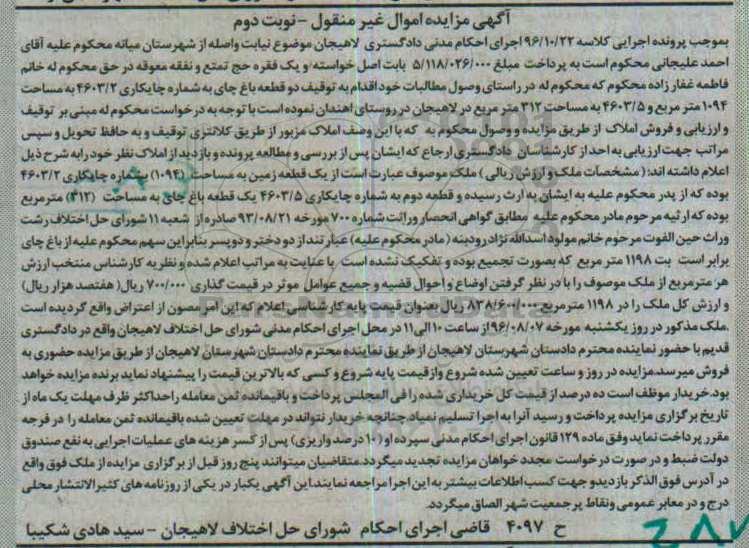 آگهی مزایده اموال غیر منقول - نوبت دوم
بموجب پرونده اجرایی کلاسه ۹۶/۱۰/۲۲ اجرای احکام مدنی دادگستری لاهیجان موضوع نیابت واصله از شهرستان میانه محکوم علیه آقای
احمد علیجانی محکوم است به پرداخت مبلغ ۵/۱۱۸/۰۲۶/۰۰۰ بابت اصل خواسته و یک فقره حج تمتع و نفقه معوقه در حق محکوم له خانم
فاطمه غفار زاده محکوم که محکوم له در راستای وصول مطالبات خود اقدام به توقیف دو قطعه باغ چای به شماره چایکاری ۴۶۰۳/۲ به مساحت
۱۰۹۴ متر مربع و ۴۶۰۳/۵ به مساحت ۳۱۲ متر مربع در لاهیجان در روستای اهندان نموده است با توجه به درخواست محکوم له مبنی بر توقیف
و ارزیابی و فروش املاک از طریق مزایده و وصول محکوم به که با این وصف املاک مزبور از طریق کلانتری توقیف و به حافظ تحویل و سپس
مراتب جهت ارزیابی به احد از کارشناسان دادگستری ارجاع که ایشان پس از بررسی و مطالعه پرونده و بازدید از املاک نظر خود را به شرح ذیل
اعلام داشته اند: (مشخصات ملک و ارزش ریالی) ملک موصوف عبارت است از یک قطعه زمین به مساحت (۱۰۹۴) بشماره چایکاری ۴۶۰۳/۲
بوده که از پدر محکوم علیه به ایشان به ارث رسیده و قطعه دوم به شماره چایکاری ۴۶۰۳/۵ یک قطعه باغ چای به مساحت (۳۱۲) مترمربع
بوده که ارثیه مرحوم مادر محکوم علیه مطابق گواهی انحصار وراثت شماره ۷۰۰ مورخه ۹۳/۰۸/۲۱ صادره از شعبه ۱۱ شورای حل اختلاف رشت
وراث حین الفوت مرحوم خانم مولود اسدالله نژاد رودبنه (مادر محکوم علیه) عبارتند از دو دختر و دو پسر بنابراین سهم محکوم علیه از باغ چای
برابر است بت ۱۱۹۸ متر مربع که بصورت تجمیع بوده و تفکیک نشده است با عنایت به مراتب اعلام شده و نظریه کارشناس منتخب ارزش
هر مترمربع از ملک موصوف را با در نظر گرفتن اوضاع و احوال قضیه و جمیع عوامل موثر در قیمت گذاری ۷۰۰/۰۰۰ ریال (هفتصد هزار ریال)
و ارزش کل ملک را در ۱۱۹۸ مترمربع ۸۳۸/۶۰۰/۰۰۰ ریال بعنوان قیمت پایه کارشناسی اعلام که این امر مصون از اعتراض واقع گردیده است
.ملک مذکور در روز یکشنبه مورخه ۹۶/۰۸/۰۷ از ساعت ۱۰ الی ۱۱ در محل اجرای احکام مدنی شورای حل اختلاف لاهیجان واقع در دادگستری
قدیم با حضور نماینده محترم دادستان شهرستان لاهیجان از طریق نماینده محترم دادستان شهرستان لاهیجان از طریق مزایده حضوری به
فروش میرسد.مزایده در روز و ساعت تعیین شده شروع و از قیمت پایه شروع و کسی که بالاترین قیمت را پیشنهاد نماید برنده مزایده خواهد
بود.خریدار موظف است ده درصد از قیمت کل خریداری شده را فی المجلس پرداخت و باقیمانده ثمن معامله را حداکثر ظرف مهلت یک ماه از
تاریخ برگزاری مزایده پرداخت و رسید آنرا به اجرا تسلیم نماید چنانچه خریدار نتواند در مهلت تعیین شده باقیمانده ثمن معامله را در فرجه
مقرر پرداخت نماید وفق ماده ۱۲۹ قانون اجرای احکام مدنی سپرده او (۱۰ درصد واریزی) پس از کسر هزینه های عملیات اجرایی به نفع صندوق
دولت ضبط و در صورت درخواست مجدد خواهان مزایده تجدید میگردد.متقاضیان میتوانند پنج روز قبل از برگزاری مزایده از ملک فوق واقع
در آدرس فوق الذکر بازدید و جهت کسب اطلاعات بیشتر به این اجرا مراجعه نمایند.این آگهی یکبار در یکی از روزنامه های کثیرالانتشار محلی
درج و در معابر عمومی ونقاط پرجمعیت شهر الصاق میگردد.
ح ۴۰۹۷ قاضی اجرای احکام شورای حل اختلاف لاهیجان - سید هادی شکیبا
۲۸۷